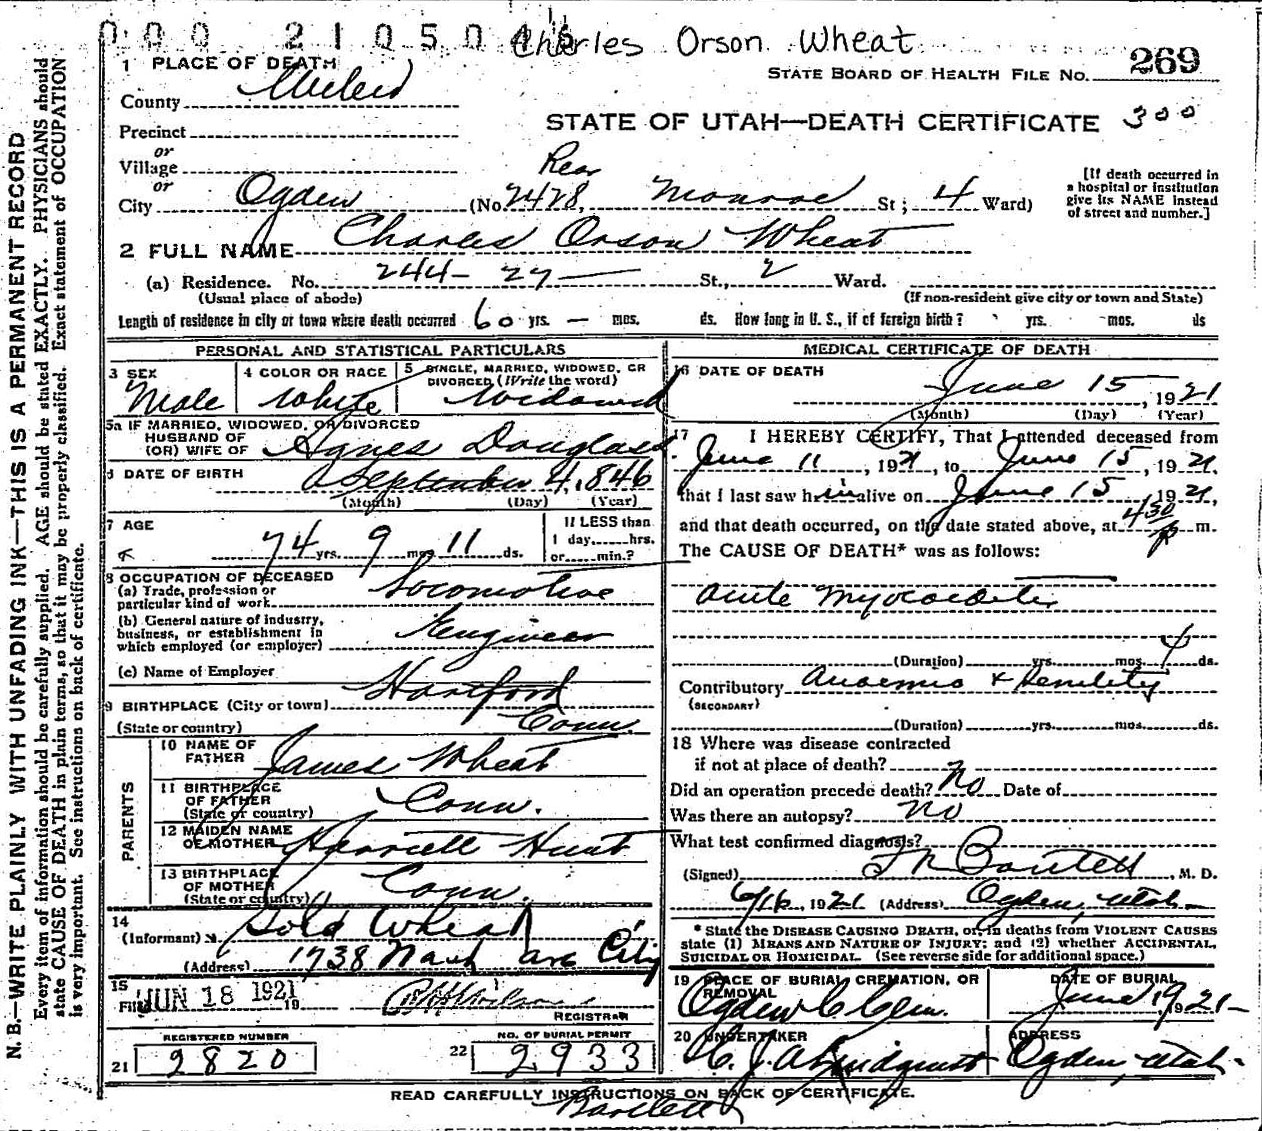 000 210504
Charles Orson Wheat
STATE BOARD OF HEALTH FILE NO. 269
1 PLACE OF DEATH
County
STATE OF UTAH—DEATH CERTIFICATE 300
Precinct
or
Village
or
Rear
City Ogden (No 2478, Monroe St; 4 Ward)
[If death occurred in
a hospital or institution
give its NAME instead
of street and number.]
2 FULL NAME Charles Orson Wheat
(a) Residence. No. 244- 27 St., 2 Ward.
(Usual place of abode) (If non-resident give city or town and State)
Length of residence in city or town where death occurred 60 yrs. — mos. ds. How long in U. S., if of foreign birth? yrs. mos. ds
PERSONAL AND STATISTICAL PARTICULARS
3 SEX Male
4 COLOR OR RACE White
5 SINGLE, MARRIED, WIDOWED, OR
DIVORCED (Write the word)
Widowed
5a IF MARRIED, WIDOWED, OR DIVORCED
HUSBAND OF
(OR) WIFE OF Agnes Douglass
6 DATE OF BIRTH September 4, 1846
(Month) (Day) (Year)
7 AGE
74 yrs. 9 mos 11 ds.
If LESS than
1 day, hrs.
or min.?
8 OCCUPATION OF DECEASED
(a) Trade, profession or
particular kind of work Locomotive
(b) General nature of industry,
business, or establishment in
which employed (or employer) Engineer
(c) Name of Employer
9 BIRTHPLACE (City or town) Hartford
(State or country) Conn.
PARENTS
10 NAME OF
FATHER James Wheat
11 BIRTHPLACE
OF FATHER
(State or country) Conn.
12 MAIDEN NAME
OF MOTHER Harriett Hunt
13 BIRTHPLACE
OF MOTHER
(State or country) Conn.
14
(Informant) Wheat
(Address) 1738 Wash ave City
15
Filed JUN 18 1921 19
REGISTRAR
REGISTERED NUMBER
21 2820
NO. OF BURIAL PERMIT
22 2933
MEDICAL CERTIFICATE OF DEATH
16 DATE OF DEATH
June 15, 1921
(Month) (Day) (Year)
17 I HEREBY CERTIFY, That I attended deceased from
June 11, 1921, to June 15, 1921,
that I last saw him alive on June 15, 1921,
and that death occurred, on the date stated above, at 4 30 p m.
The CAUSE OF DEATH* was as follows:
Acute Myocarditis
(Duration) yrs. mos. 4 ds.
Contributory Anaemia +
(SECONDARY)
(Duration) yrs. mos. ds.
18 Where was disease contracted
if not at place of death?
Did an operation precede death? No Date of
Was there an autopsy? No
What test confirmed diagnosis?
(Signed) Bartlett, M. D.
6/16, 1921 (Address) Ogden, Utah
* State the DISEASE CAUSING DEATH, or, in deaths from VIOLENT CAUSES
state (1) MEANS AND NATURE OF INJURY; and (2) whether ACCIDENTAL,
SUICIDAL OR HOMICIDAL. (See reverse side for additional space.)
19 PLACE OF BURIAL CREMATION, OR
REMOVAL
Ogden C Cem.
DATE OF BURIAL
June 19, 1921
20 UNDERTAKER
ADDRESS
Ogden, Utah
READ CAREFULLY INSTRUCTIONS ON BACK OF CERTIFICATE.
Bartlett
N. B.—WRITE PLAINLY WITH UNFADING INK—THIS IS A PERMANENT RECORD
Every item of information should be carefully supplied. AGE should be stated EXACTLY. PHYSICIANS should
state CAUSE OF DEATH in plain terms, so that it may be properly classified. Exact statement of OCCUPATION
is very important. See instructions on back of certificate.